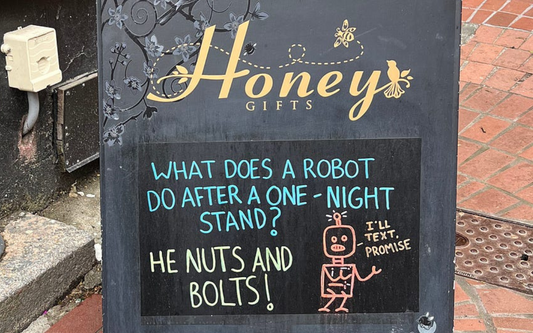 Honey
GIFTS
WHAT DOES A ROBOT
DO AFTER A ONE-NIGHT
STAND?
HE NUTS AND
BOLTS!
I'LL
TEXT,
PROMISE